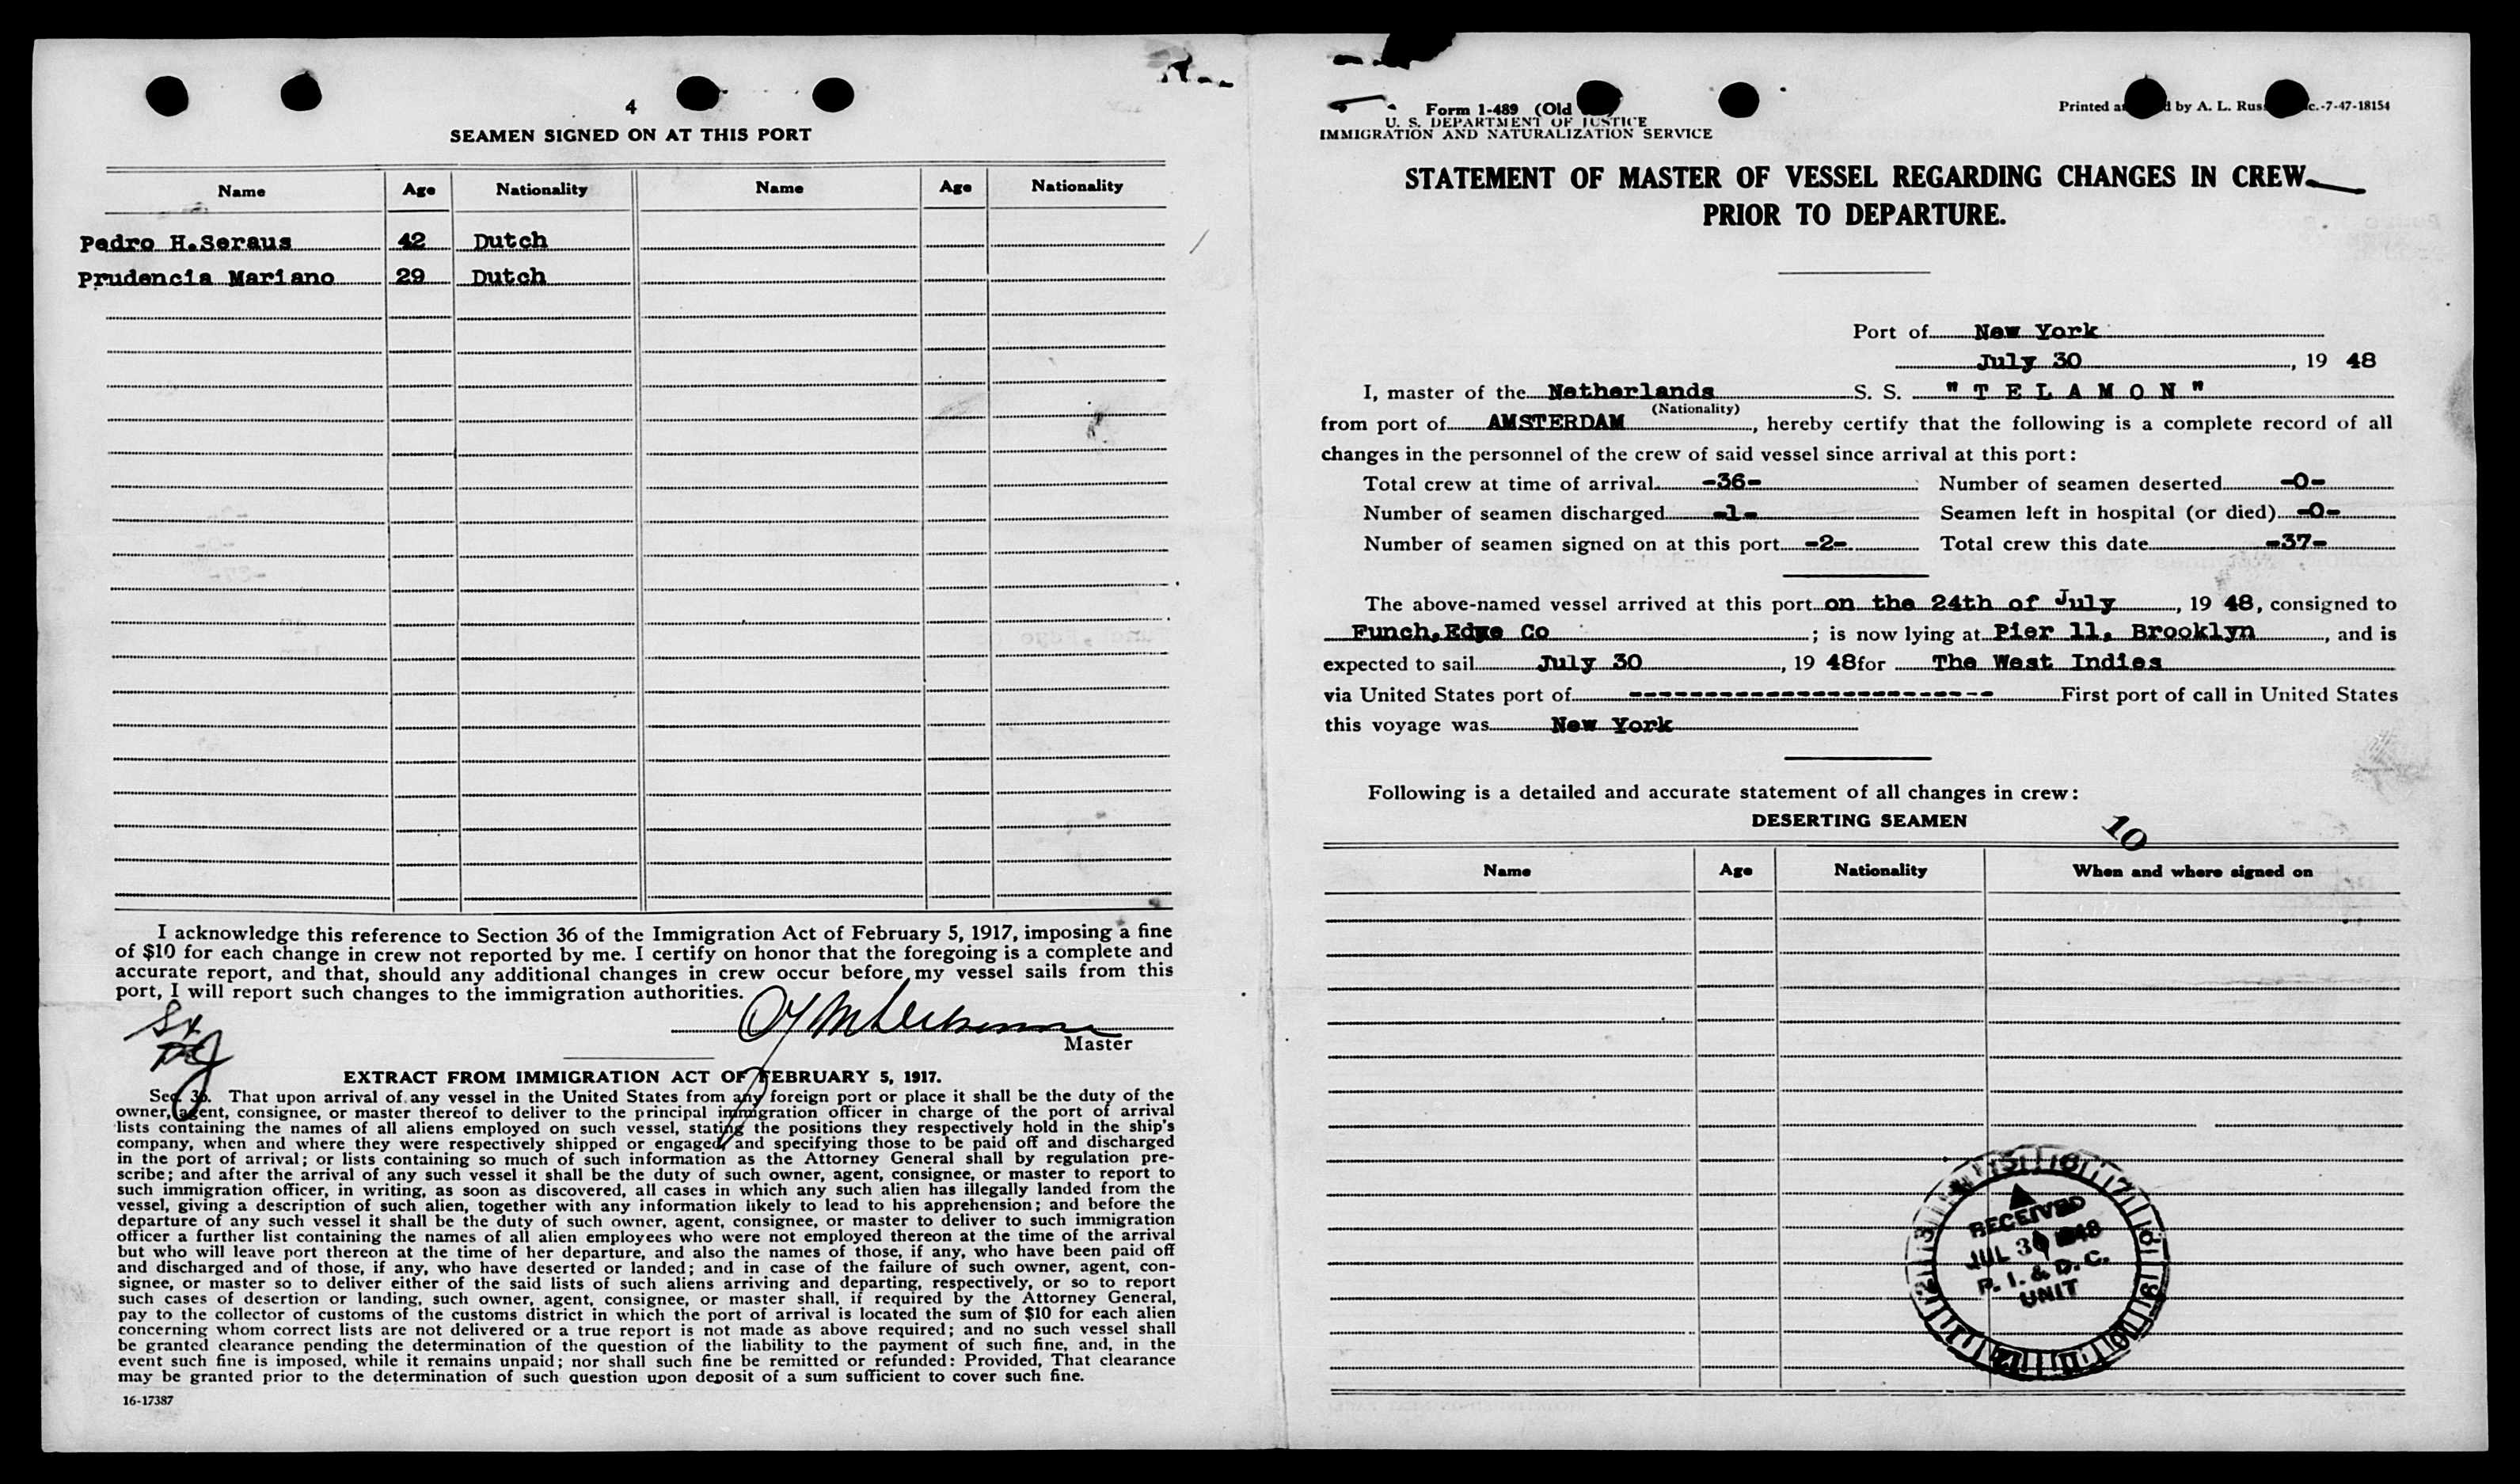 4
SEAMEN SIGNED ON AT THIS PORT
Name Age Nationality Name Age Nationality
Pedro H.Seraus 42 Dutch
Prudencia Mariano 29 Dutch
I acknowledge this reference to Section 36 of the Immigration Act of February 5, 1917, imposing a fine
of $10 for each change in crew not reported by me. I certify on honor that the foregoing is a complete and
accurate report, and that, should any additional changes in crew occur before my vessel sails from this
port, I will report such changes to the immigration authorities.
Master
EXTRACT FROM IMMIGRATION ACT OF FEBRUARY 5, 1917.
Sec. 36. That upon arrival of any vessel in the United States from any foreign port or place it shall be the duty of the
owner, agent, consignee, or master thereof to deliver to the principal immigration officer in charge of the port of arrival
lists containing the names of all aliens employed on such vessel, stating the positions they respectively hold in the ship's
company, when and where they were respectively shipped or engaged, and specifying those to be paid off and discharged
in the port of arrival; or lists containing so much of such information as the Attorney General shall by regulation pre-
scribe; and after the arrival of any such vessel it shall be the duty of such owner, agent, consignee, or master to report to
such immigration officer, in writing, as soon as discovered, all cases in which any such alien has illegally landed from the
vessel, giving a description of such alien, together with any information likely to lead to his apprehension; and before the
departure of any such vessel it shall be the duty of such owner, agent, consignee, or master to deliver to such immigration
officer a further list containing the names of all alien employees who were not employed thereon at the time of the arrival
but who will leave port thereon at the time of her departure, and also the names of those, if any, who have been paid off
and discharged and of those, if any, who have deserted or landed; and in case of the failure of such owner, agent, con-
signee, or master so to deliver either of the said lists of such aliens arriving and departing, respectively, or so to report
such cases of desertion or landing, such owner, agent, consignee, or master shall, if required by the Attorney General,
pay to the collector of customs of the customs district in which the port of arrival is located the sum of $10 for each alien
concerning whom correct lists are not delivered or a true report is not made as above required; and no such vessel shall
be granted clearance pending the determination of the question of the liability to the payment of such fine, and, in the
event such fine is imposed, while it remains unpaid; nor shall such fine be remitted or refunded: Provided, That clearance
may be granted prior to the determination of such question upon deposit of a sum sufficient to cover such fine.
16-17387
Form 1-489 (Old
U. S. DEPARTMENT OF JUSTICE
IMMIGRATION AND NATURALIZATION SERVICE
Printed by A. L. 7-47-18154
STATEMENT OF MASTER OF VESSEL REGARDING CHANGES IN CREW
PRIOR TO DEPARTURE.
Port of New York
July 30, 19 48
I, master of the Netherlands S. S. "T E L A M O N"
(Nationality)
from port of AMSTERDAM, hereby certify that the following is a complete record of all
changes in the personnel of the crew of said vessel since arrival at this port:
Total crew at time of arrival -36- Number of seamen deserted -0-
Number of seamen discharged -1- Seamen left in hospital (or died) -0-
Number of seamen signed on at this port -2- Total crew this date -37-
The above-named vessel arrived at this port on the 24th of July, 19 48, consigned to
Funch,Edye Co; is now lying at Pier 11, Brooklyn, and is
expected to sail July 30, 19 48 for The West Indies
via United States port of ------------------------ First port of call in United States
this voyage was New York
Following is a detailed and accurate statement of all changes in crew:
DESERTING SEAMEN
10
Name Age Nationality When and where signed on
RECEIVED
JUL 30 1948
P. I. & D. C.
UNIT